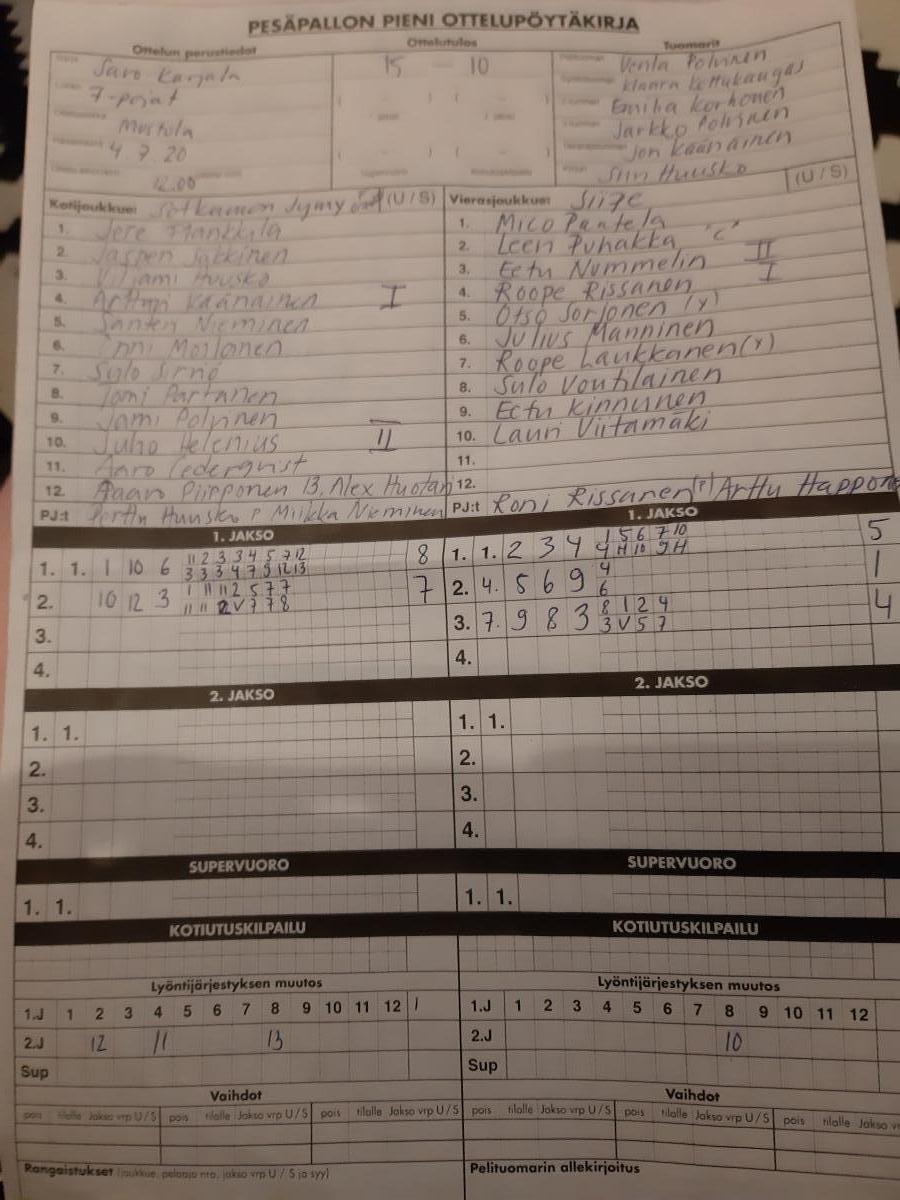 PESÄPALLON PIENI OTTELUPÖYTÄKIRJA
Ottelun perustiedot
Ottelutulos
Tuomarit
Savo Karjala
7-pojat
Mertola
4 7 20
12.00
15 - 10
Venla Polvinen
Klaara Kettukangas
Emilia Korhonen
Jarkko Polvinen
Jon Kaänäinen
Siin Huusko
Kotijoukkue: Sotkamon Jymy (U / S)
1. Jere Mankkila
2. Jasper Jakkinen
3. Viljami Huusko
4. Arttupi Kaänäinen I
5. Santeri Nieminen
6. Onni Moilanen
7. Sulo Sirnö
8. Tomi Partanen
9. Jami Polvinen
10. Juho Helenius II
11. Aaro Cederqvist
12. Aaaro Piipponen 13. Alex Huotari
PJ:t Perttu Huusko P Miikka Nieminen
Vierasjoukkue: Siipe (U / S)
1. Mico Pantela
2. Leen Puhakka "C"
3. Eetu Nummelin II
4. Roope Rissanen I
5. Otso Sorjonen (y)
6. Julius Manninen
7. Roope Laukkanen (Y)
8. Sulo Voutilainen
9. Eetu Kinnunen
10. Lauri Viitamäki
11.
12.
PJ:t Roni Rissanen (P) Arttu Happon
1. JAKSO
1. 1. 1 10 6 11 2 3 3 4 5 7 12 8
3 3 3 4 7 9 12 13
2. 10 12 3 1 11 11 2 5 7 7 7
11 11 2 V 7 7 8
3.
4.
1. JAKSO
1. 1. 2 3 4 1 5 6 7 10 5
4 H 10 9 H
2. 4. 5 6 9 4 1
6
3. 7. 9 8 3 8 1 2 4 4
3 V 5 7
4.
2. JAKSO
1. 1.
2.
3.
4.
2. JAKSO
1. 1.
2.
3.
4.
SUPERVUORO
1. 1.
SUPERVUORO
1. 1.
KOTIUTUSKILPAILU
KOTIUTUSKILPAILU
Lyöntijärjestyksen muutos
1.J 1 2 3 4 5 6 7 8 9 10 11 12 1
2.J 12 11 13
Sup
Lyöntijärjestyksen muutos
1.J 1 2 3 4 5 6 7 8 9 10 11 12
2.J 10
Sup
Vaihdot
pois tilalle Jakso vrp U / S pois tilalle Jakso vrp U / S pois tilalle Jakso vrp U / S
Vaihdot
pois tilalle Jakso vrp U / S pois tilalle Jakso vrp U / S pois tilalle Jakso v
Rangaistukset (joukkue, pelaaja nro, jakso vrp U / S ja syy)
Pelituomarin allekirjoitus